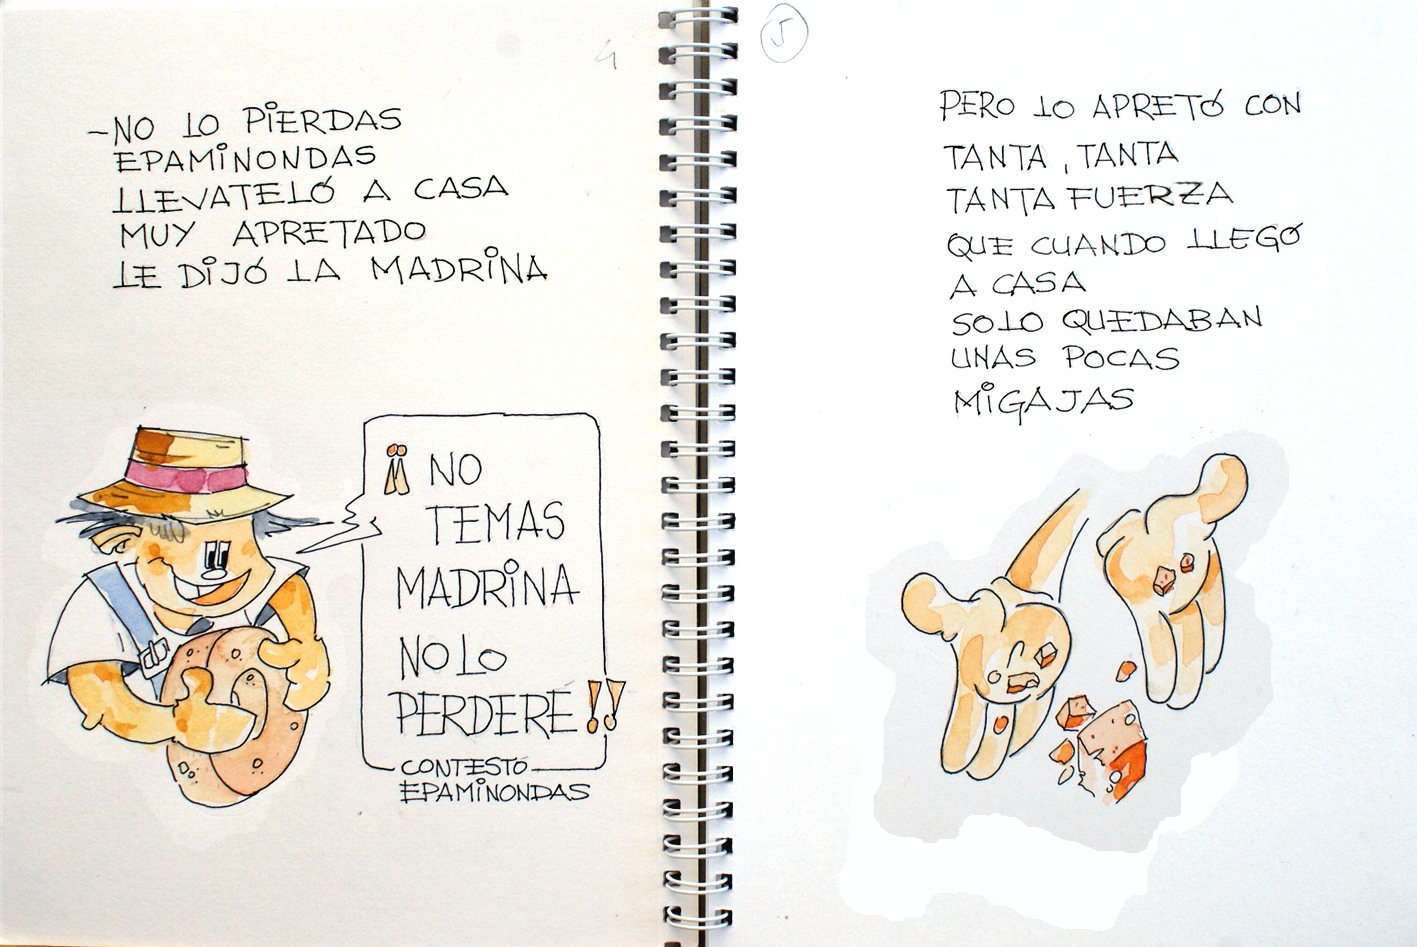 4
-NO LO PIERDAS
EPAMINONDAS
LLEVATELÓ A CASA
MUY APRETADO
LE DIJÓ LA MADRINA
¡¡ NO
TEMAS
MADRINA
NO LO
PERDERE!!
CONTESTÓ
EPAMINONDAS
5
PERO LO APRETÓ CON
TANTA, TANTA
TANTA FUERZA
QUE CUANDO LLEGÓ
A CASA
SOLO QUEDABAN
UNAS POCAS
MIGAJAS